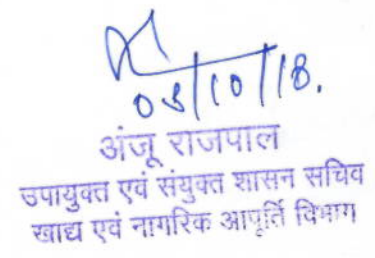 03/10/18.
अंजू राजपाल
उपायुक्त एवं संयुक्त शासन सचिव
खाद्य एवं नागरिक आपूर्ति विभाग